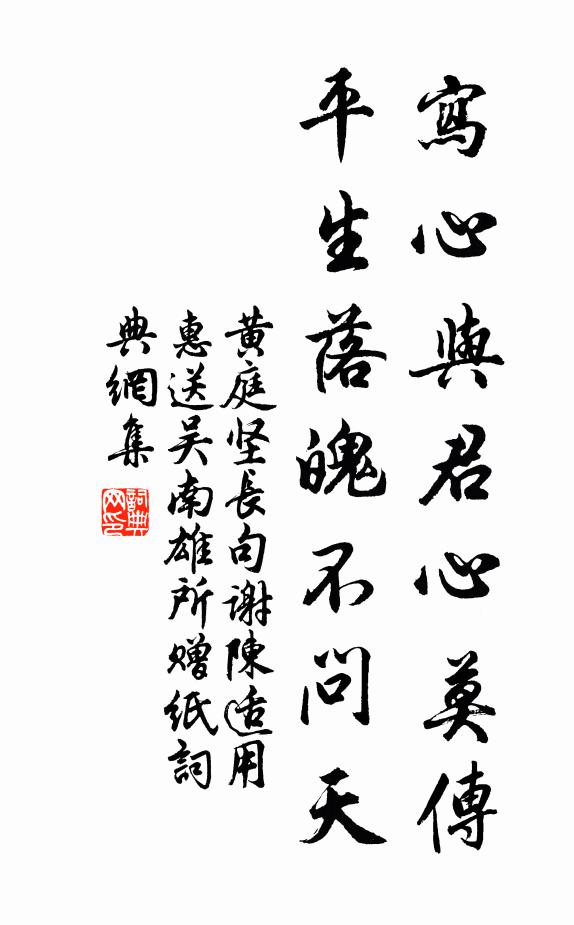 寫心與君心莫傳
平生落魄不問天
黄庭坚長句謝陳适用
惠送吴南雄所赠纸詞
典網集
詞典
网印